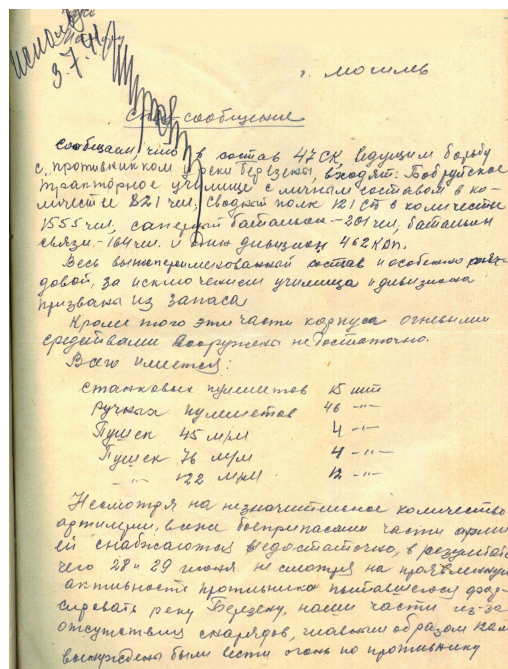 Исполь
3.7.41
г. Могилев
Спец-сообщение
Сообщаем, что в состав 47 СК, ведущим борьбу
с противником у реки Березены, входят: Бобруйское
тракторное училище с личным составом в ко-
личестве 821 чел, сводный полк 121 СД в количестве
1555 чел, саперный батальон – 201 чел, батальон
связи – 164 чел. и один дивизион 462 КАП.
Весь вышеперечисленный состав и особенно рядо-
довой, за исключением училища и дивизиона
призваны из запаса
Кроме того эти части корпуса огневыми
средствами вооружены недостаточно.
Всего имеется:
станковых пулеметов 15 шт
ручных пулеметов 46 -"-
Пушек 45 м/м 4 -"-
Пушек 76 м/м 4 -"-
-"- 122 м/м 12 -"-
Несмотря на незначительное количество
артилерии, все же боеприпасами части арми-
ей снабжаются недостаточно, в результате
чего 28 и 29 июня не смотря на проявленную
активность противника пытавшегося фор-
сировать реку Березену, наши части из-за
отсутствия снарядов, главным образом
вынуждены были вести огонь по противнику